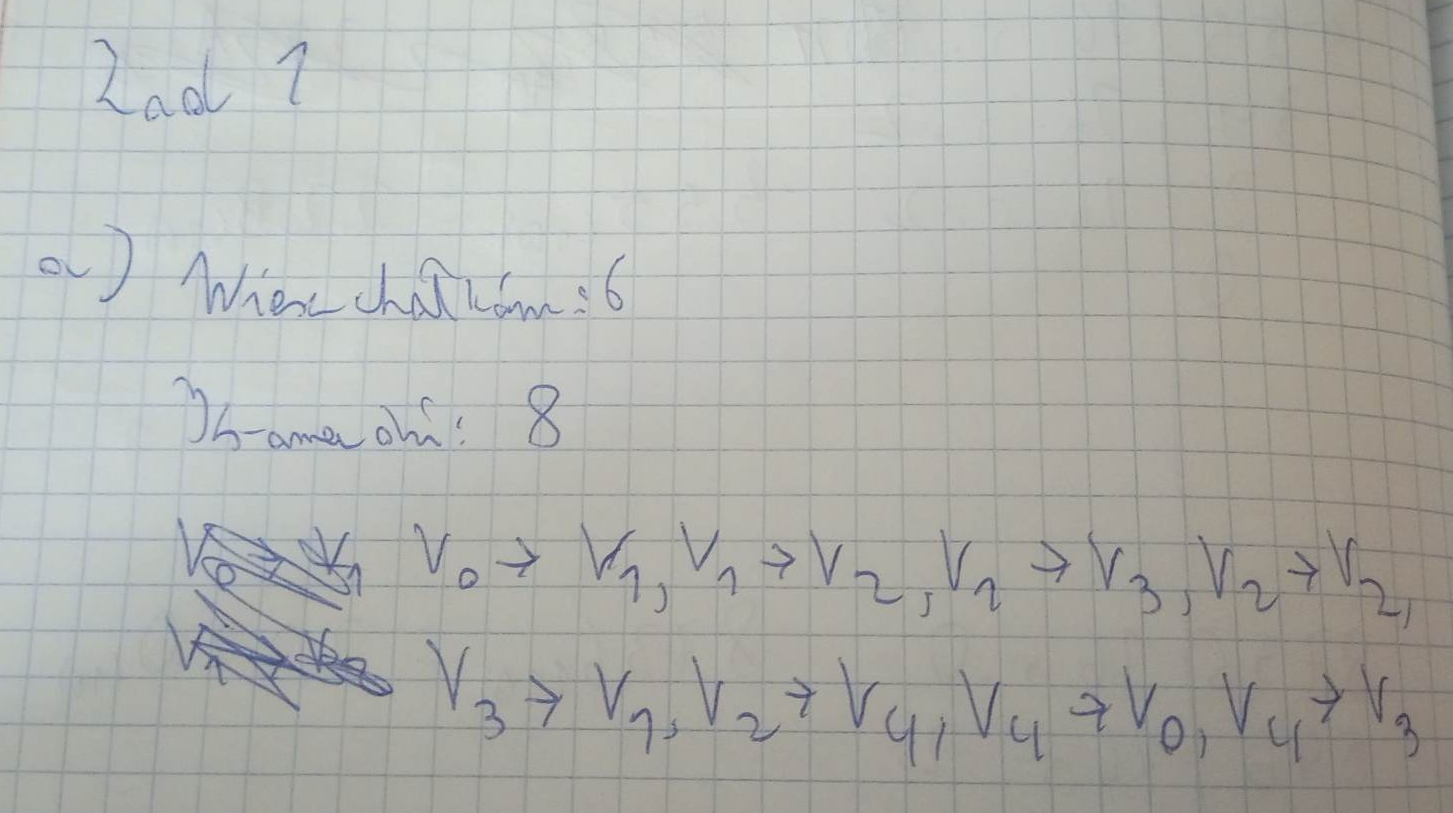 Zad 1
a) Wierzchołków: 6
Krawędzi: 8
V₀ → V₁, V₁ → V₂, V₁ → V₃, V₂ → V₂,
V₃ → V₁, V₂ → V₄, V₄ → V₀, V₄ → V₃